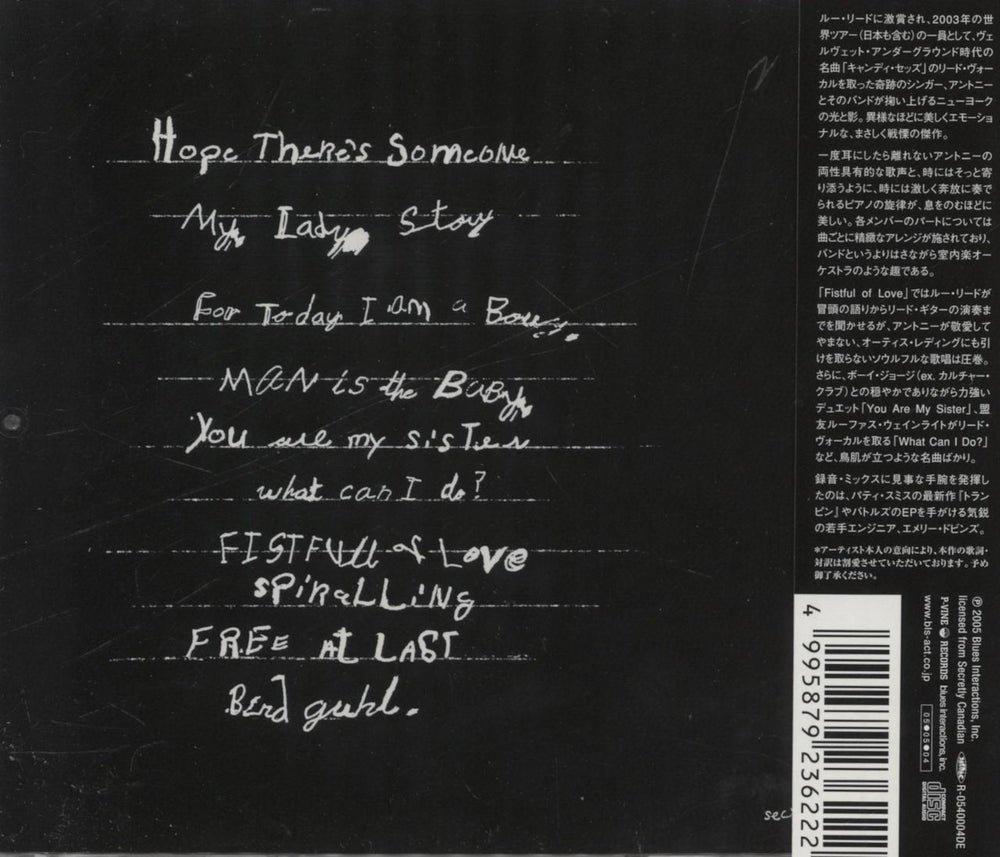 Hope There's Someone
My Lady Story
For Today I am a Boy.
MAN is the Baby
You are my sister
what can I do?
FISTFUll of Love
SPiRaLLiNg
FREE At LAST
Berd guhl.
sec
ルー・リードに激賞され、2003年の世
界ツアー(日本も含む)の一員として、ヴェ
ルヴェット・アンダーグラウンド時代の
名曲「キャンディ・セッズ」のリード・ヴォー
カルを取った奇跡のシンガー、アントニー
とそのバンドが掬い上げるニューヨーク
の光と影。異様なほどに美しくエモーショ
ナルな、まさしく戦慄の傑作。
一度耳にしたら離れないアントニーの
両性具有的な歌声と、時にはそっと寄
り添うように、時には激しく奔放に奏で
られるピアノの旋律が、息をのむほどに
美しい。各メンバーのパートについては
曲ごとに精緻なアレンジが施されており、
バンドというよりはさながら室内楽オー
ケストラのような趣である。
「Fistful of Love」ではルー・リードが
冒頭の語りからリード・ギターの演奏ま
でを聞かせるが、アントニーが敬愛して
やまない、オーティス・レディングにも引
けを取らないソウルフルな歌唱は圧巻。
さらに、ボーイ・ジョージ(ex. カルチャー・
クラブ)との穏やかでありながら力強い
デュエット「You Are My Sister」、盟
友ルーファス・ウェインライトがリード・
ヴォーカルを取る「What Can I Do?」
など、鳥肌が立つような名曲ばかり。
録音・ミックスに見事な手腕を発揮し
たのは、パティ・スミスの最新作『トラン
ピン』やバトルズのEPを手がける気鋭
の若手エンジニア、エメリー・ドビンズ。
*アーティスト本人の意向により、本作の歌詞・
対訳は割愛させていただいております。予め
御了承ください。
4 995879 236222
℗ 2005 Blues Interactions, Inc.
licensed from Secretly Canadian
P-VINE RECORDS blues interactions, inc.
www.bls-act.co.jp
05●05●04
R-0540004DE
COMPACT disc DIGITAL AUDIO